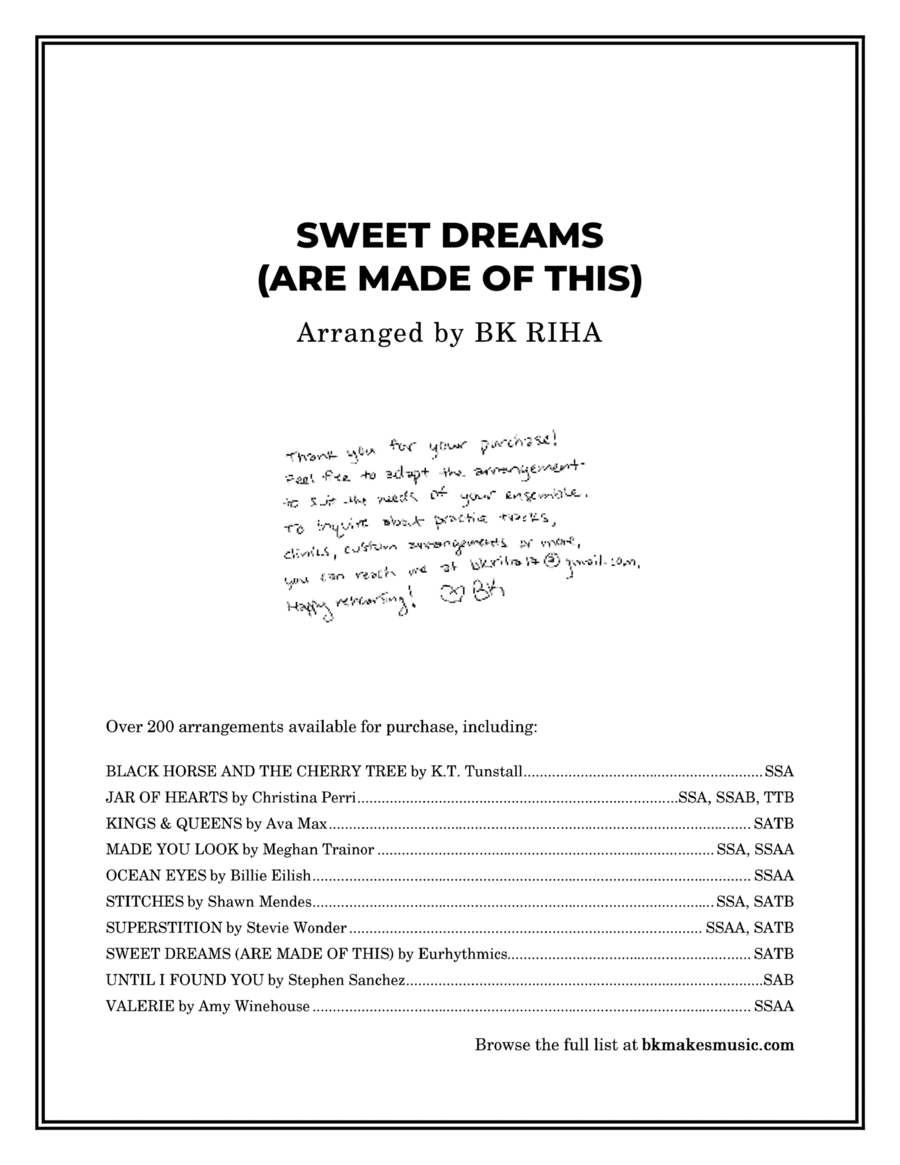 SWEET DREAMS
(ARE MADE OF THIS)
Arranged by BK RIHA
Thank you for your purchase!
Feel free to adapt the arrangement
to suit the needs of your ensemble.
To inquire about practice tracks,
clinics, custom arrangements or more,
you can reach me at @gmail.com.
Happy rehearsing! ♡ BK
Over 200 arrangements available for purchase, including:
BLACK HORSE AND THE CHERRY TREE by K.T. Tunstall SSA
JAR OF HEARTS by Christina Perri SSA, SSAB, TTB
KINGS & QUEENS by Ava Max SATB
MADE YOU LOOK by Meghan Trainor SSA, SSAA
OCEAN EYES by Billie Eilish SSAA
STITCHES by Shawn Mendes SSA, SATB
SUPERSTITION by Stevie Wonder SSAA, SATB
SWEET DREAMS (ARE MADE OF THIS) by Eurhythmics SATB
UNTIL I FOUND YOU by Stephen Sanchez SAB
VALERIE by Amy Winehouse SSAA
Browse the full list at bkmakesmusic.com